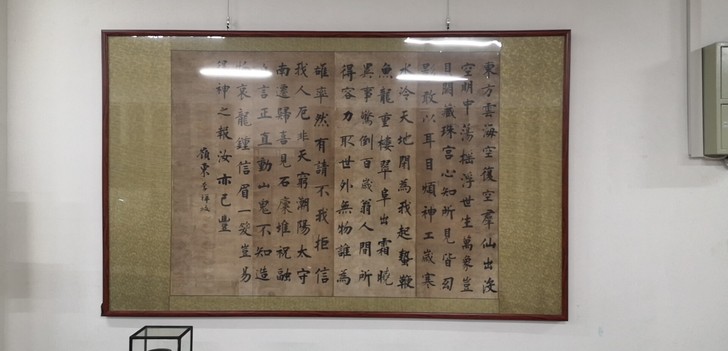 東方雲海空復空群仙出没
空明中蕩摇浮世生萬象豈
貝闕藏珠宮心知所見皆幻
影敢以耳目煩神工歲寒
水冷天地閉為我起蟄鞭
魚龍重樓翠阜出霜曉
異事驚倒百歲翁人間所
得容力取世外無物誰為
雄率然有請不我拒信
我人厄非天窮潮陽太守
南遷歸喜見石廩堆祝融
自言正直動山鬼不知造
物哀龍鍾信眉一笑豈易
得神之報汝亦已豐
嶺東